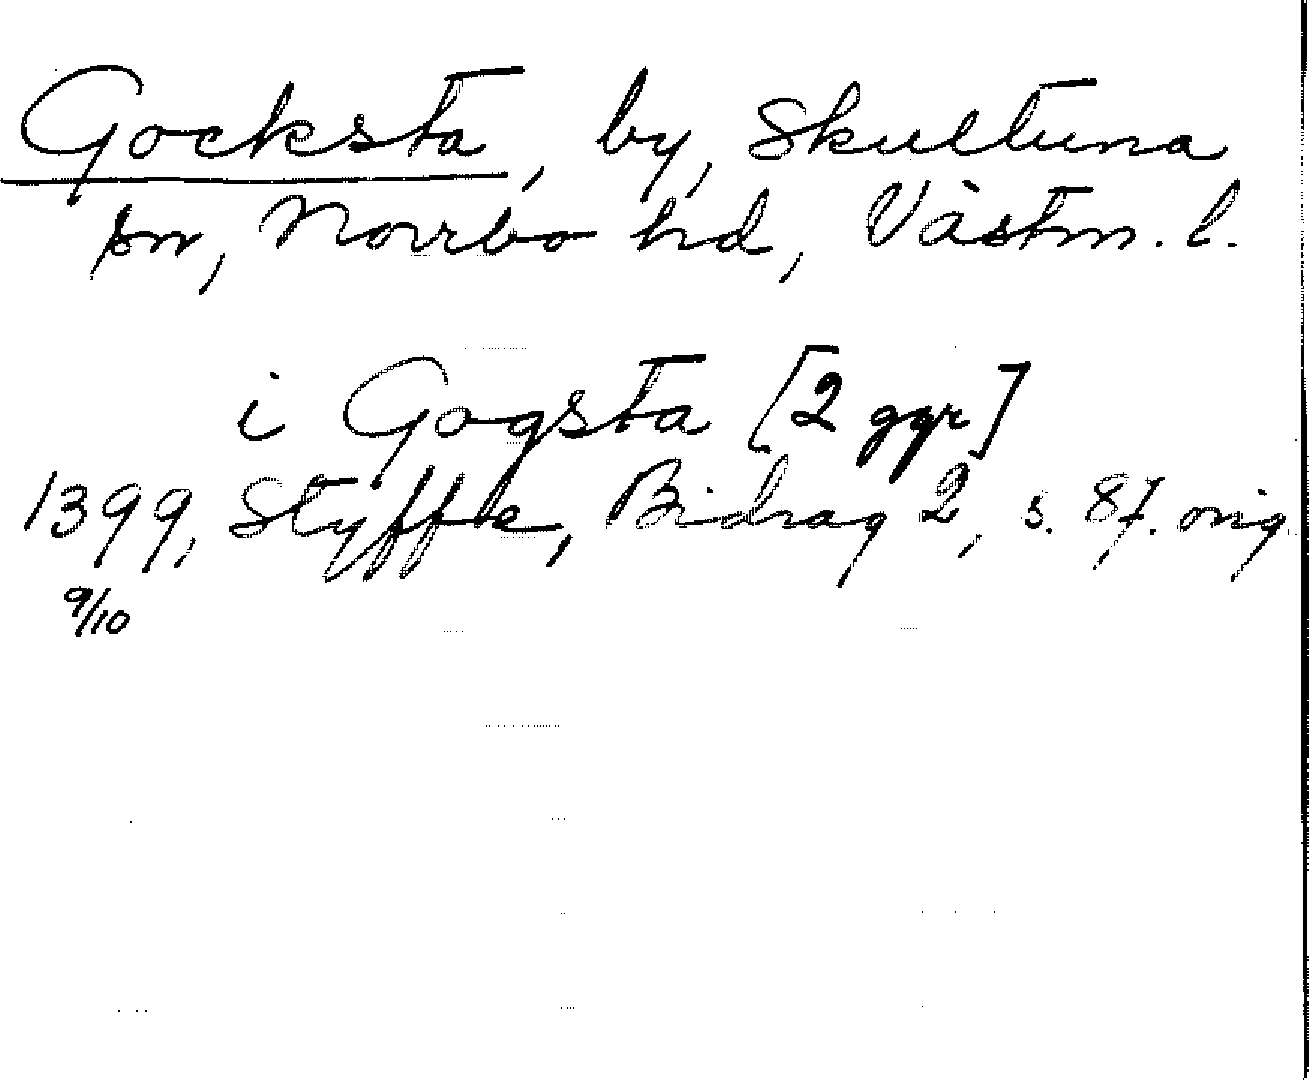 Gocksta, by, Skultuna
sn, Norrbo hd, Västm. l.
i Gogsta [2 ggr]
1399, Styffe, Bidrag 2, s. 87. orig.
9/10